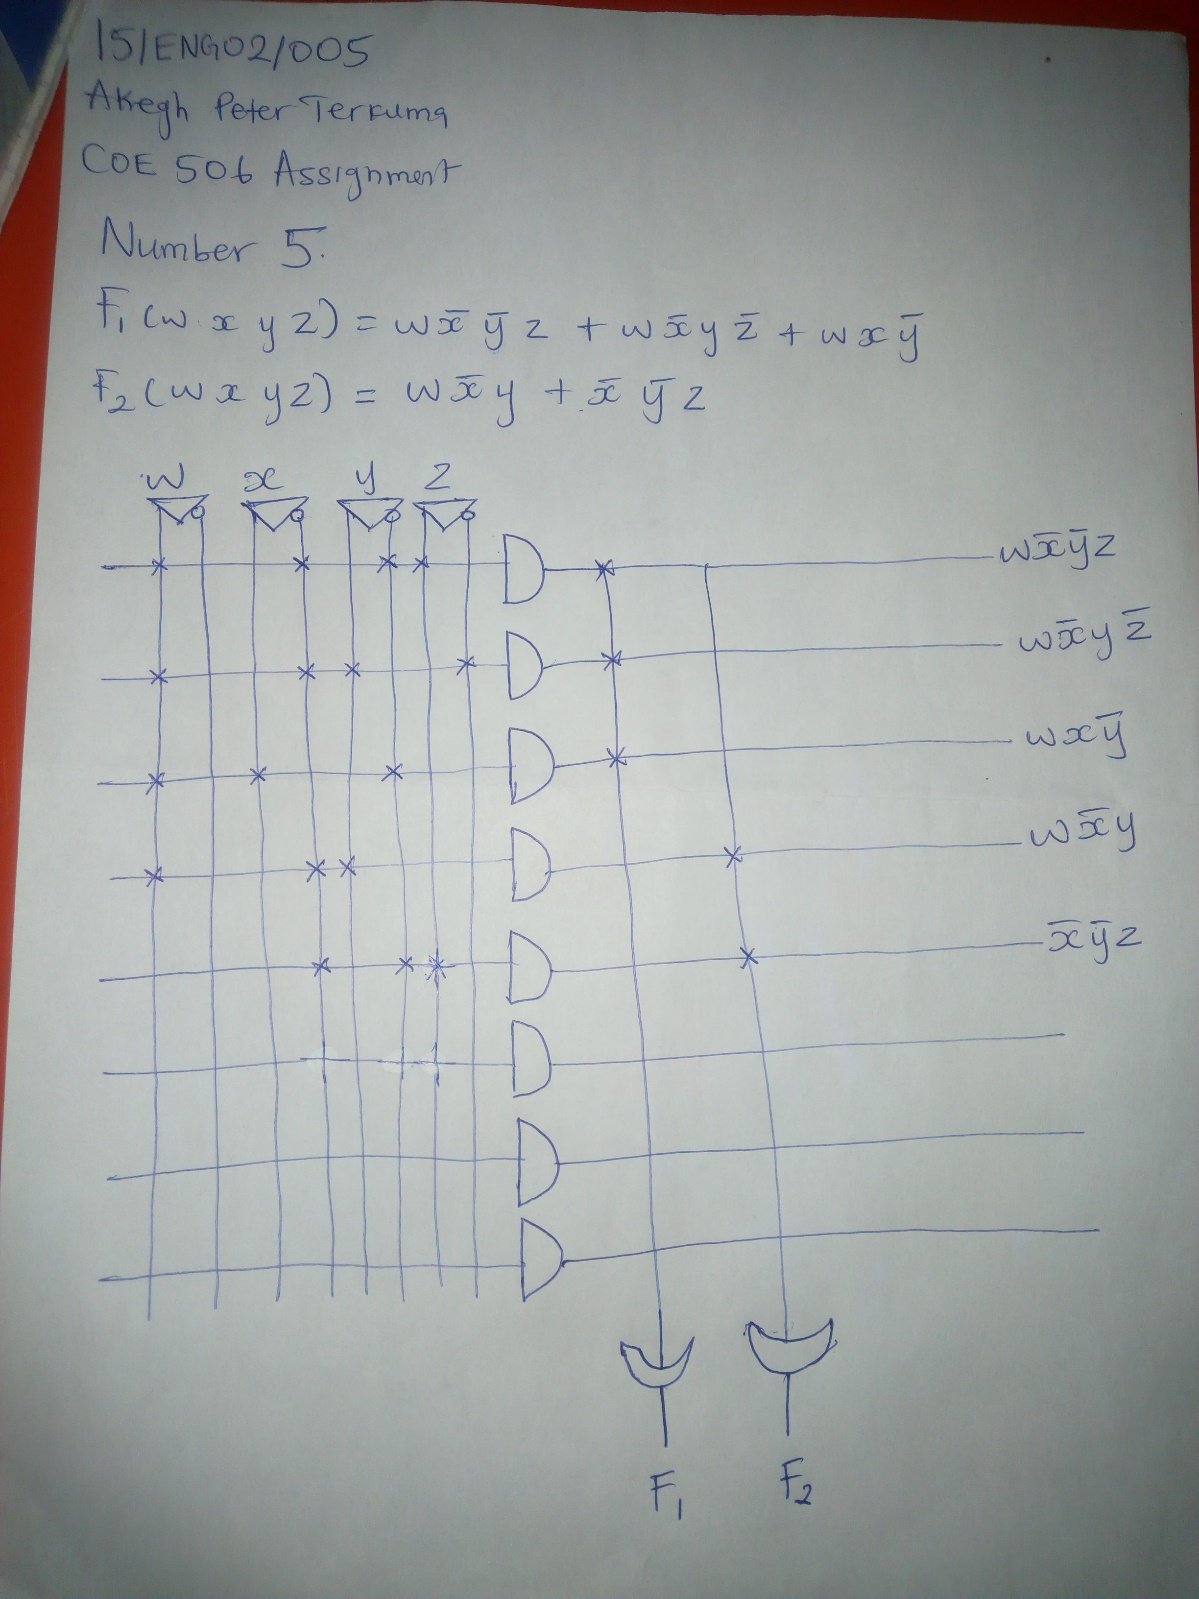 15/ENG02/005
Akegh Peter Terkuma
COE 506 Assignment
Number 5.
F₁(w x y z) = wx̄ȳz + wx̄yz̄ + wxȳ
F₂(wxyz) = wx̄y + x̄ȳz
w x y z
wx̄ȳz
wx̄yz̄
wxȳ
wx̄y
x̄ȳz
F₁ F₂